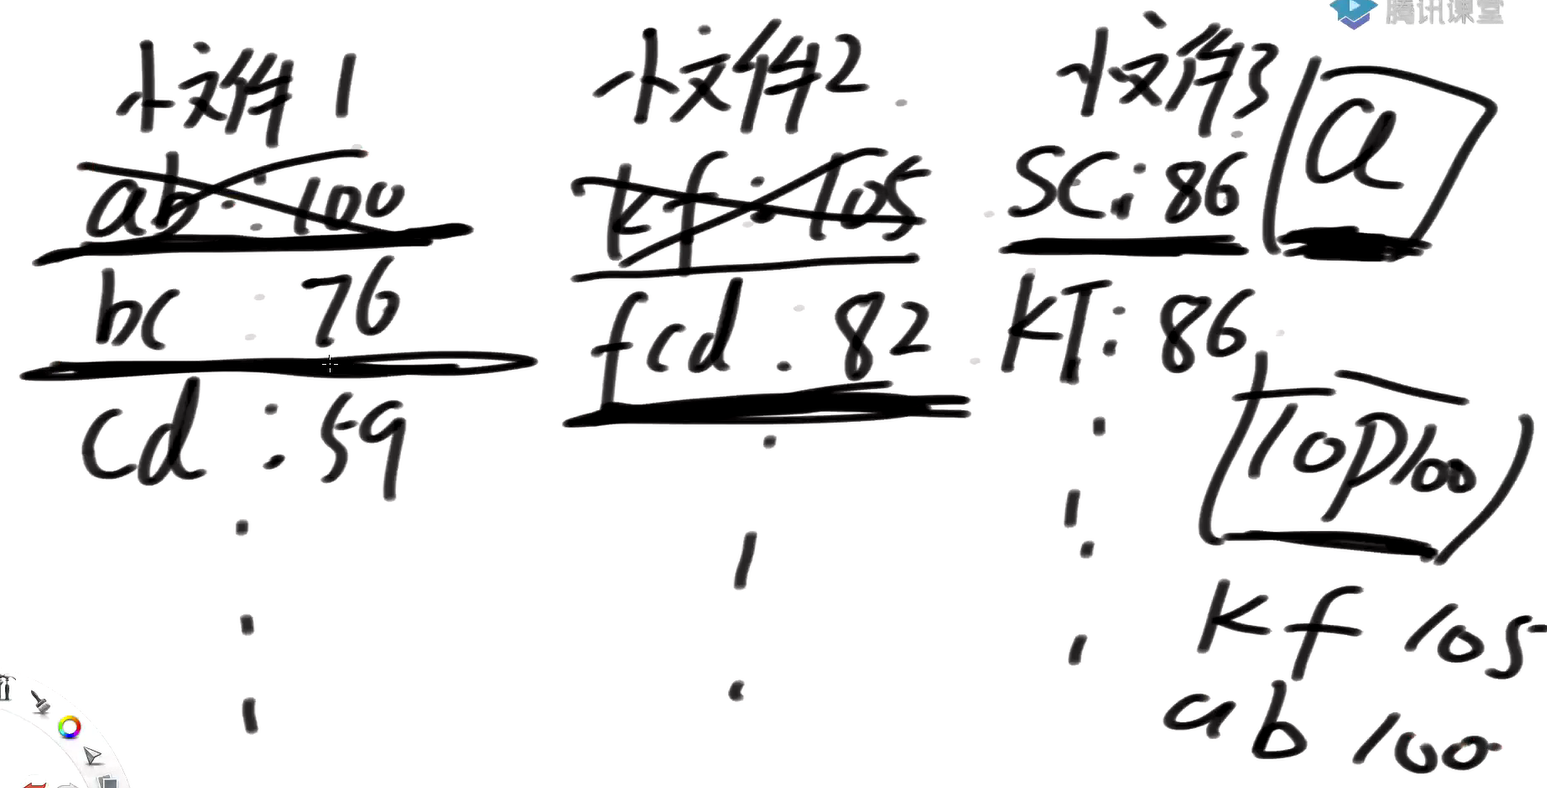 腾讯课堂
小文件1
ab : 100
bc : 76
cd : 59
小文件2
kf : 105
fcd : 82
小文件3
SC : 86
KT : 86
a
TOP100
kf 105
ab 100